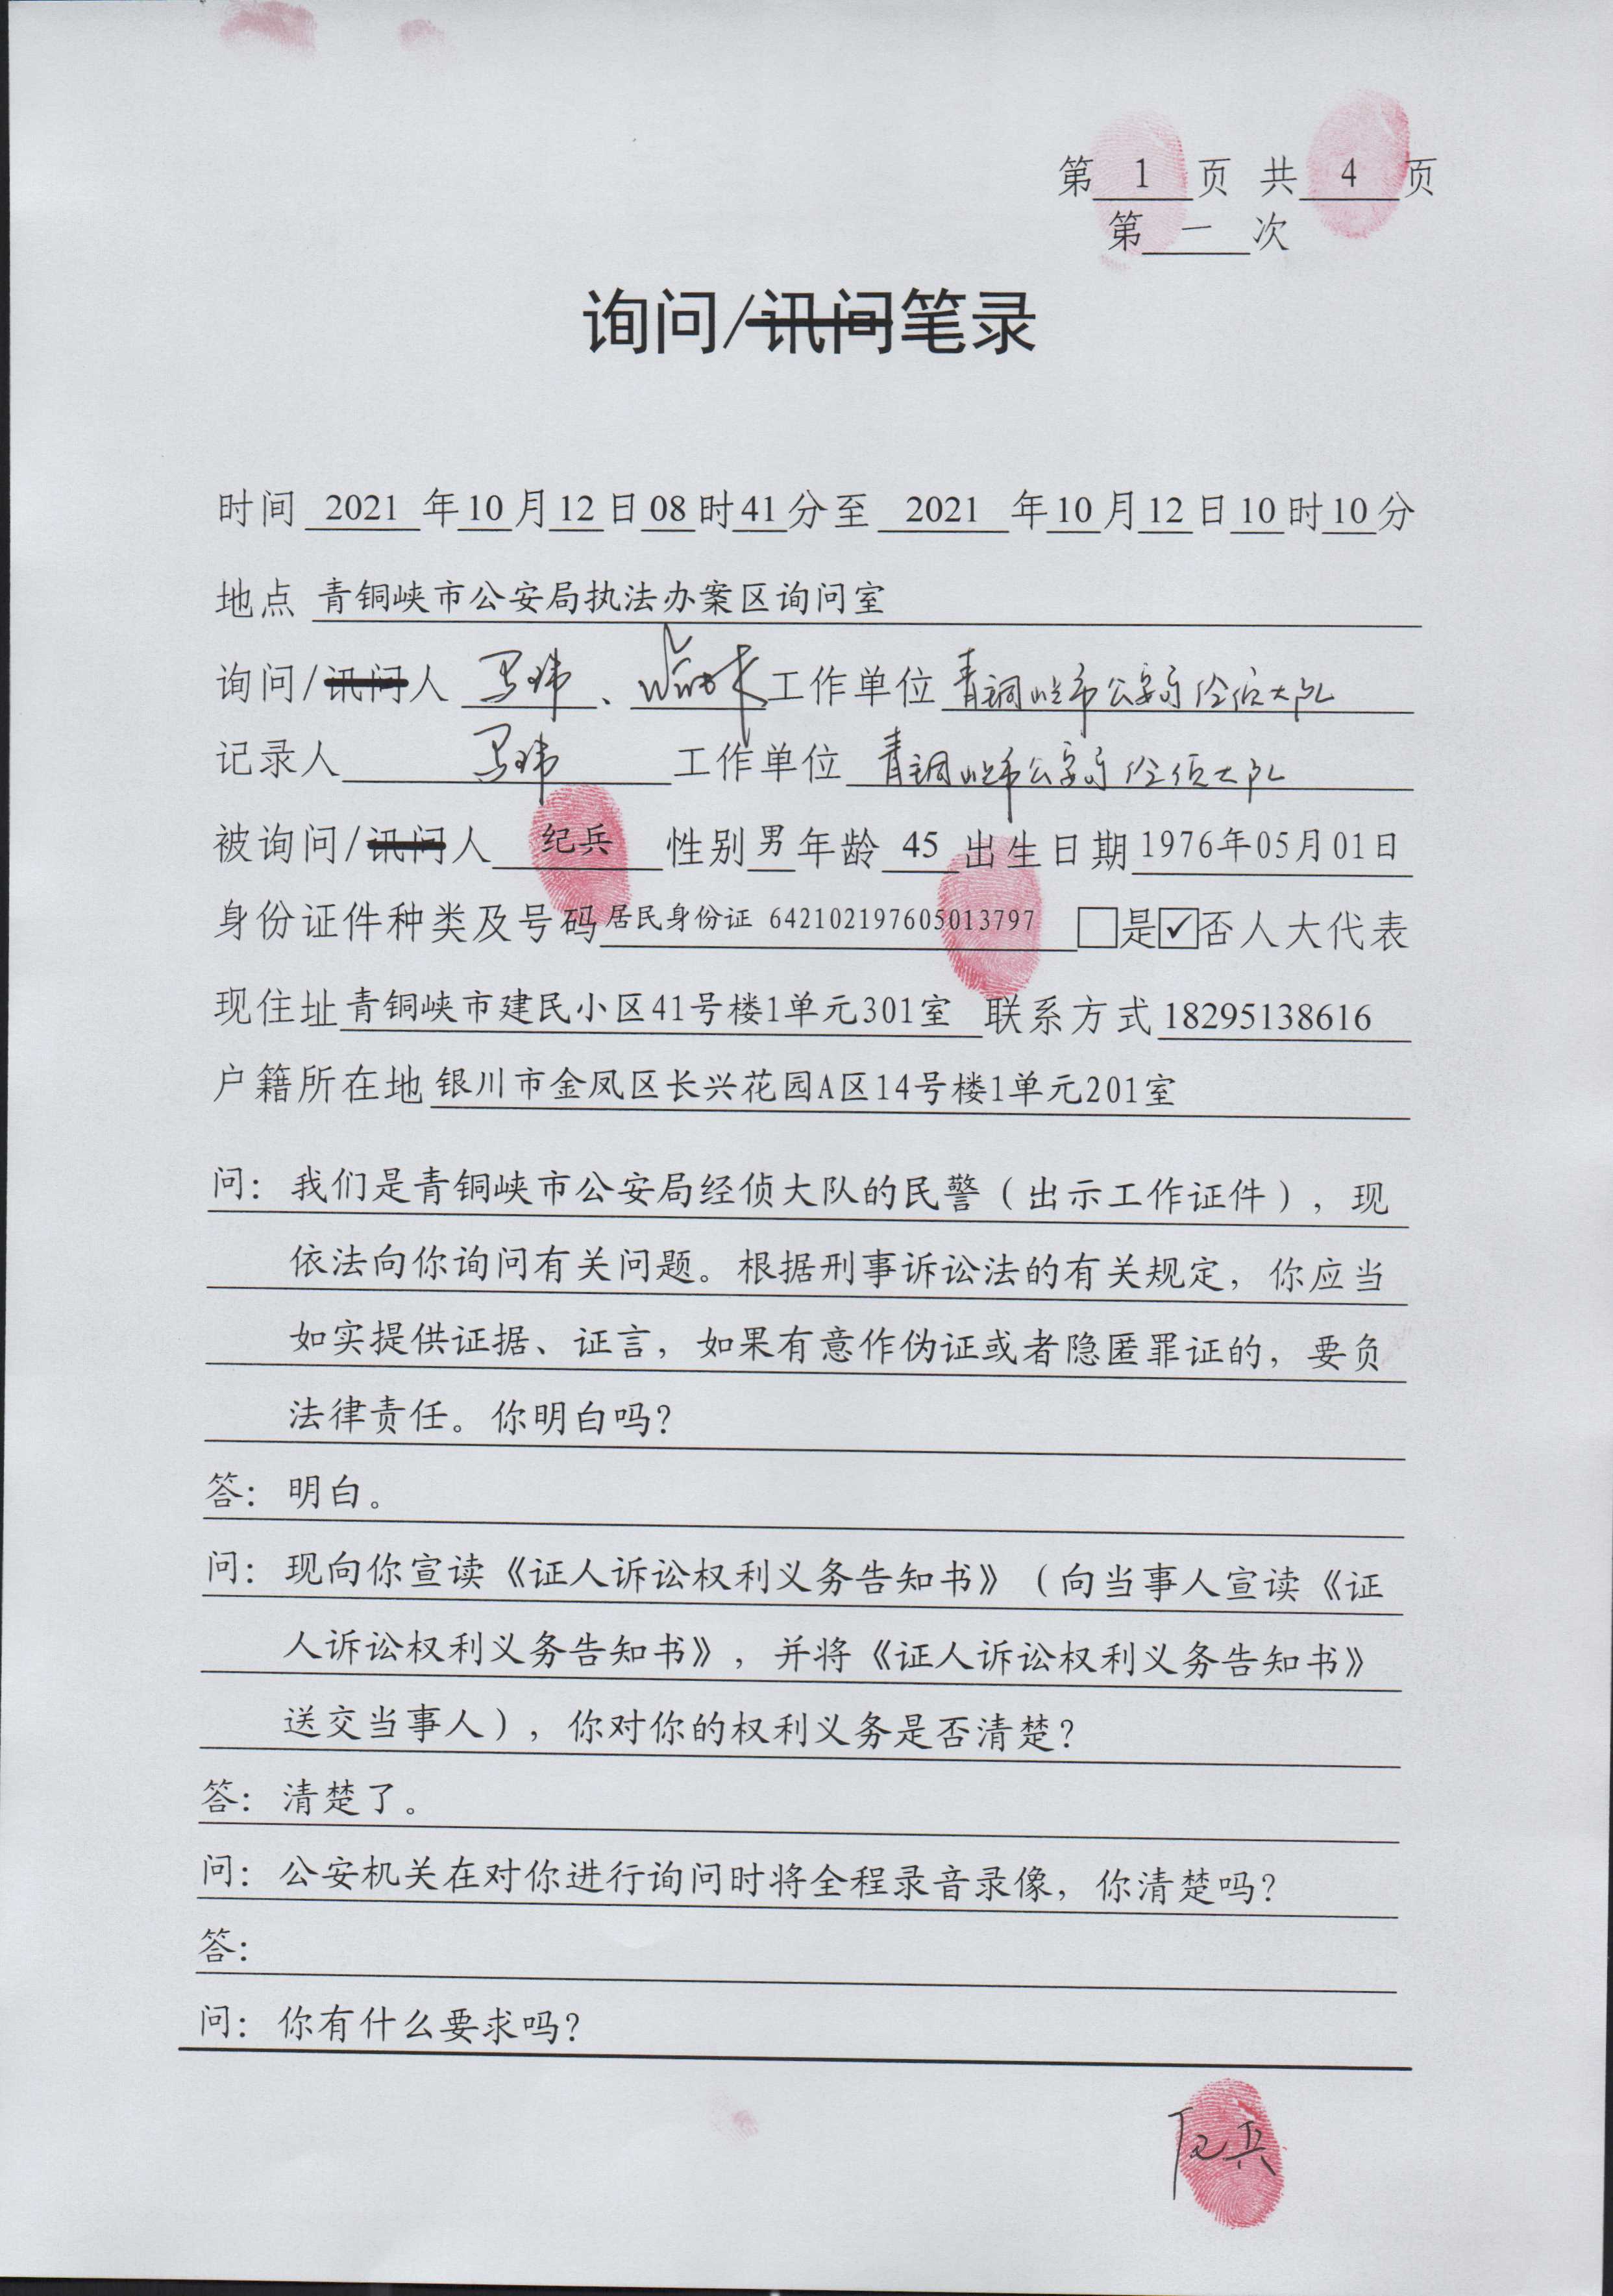 第 1 页 共 4 页
第 一 次
询问/讯问笔录
时间 2021 年10月12日08时41分至 2021 年10月12日10时10分
地点 青铜峡市公安局执法办案区询问室
询问/讯问人 马玮、 工作单位 青铜峡市公安局经侦大队
记录人 马玮 工作单位 青铜峡市公安局经侦大队
被询问/讯问人 纪兵 性别 男 年龄 45 出生日期 1976年05月01日
身份证件种类及号码 居民身份证 642102197605013797 □是☑否人大代表
现住址 青铜峡市建民小区41号楼1单元301室 联系方式 18295138616
户籍所在地 银川市金凤区长兴花园A区14号楼1单元201室
问：我们是青铜峡市公安局经侦大队的民警（出示工作证件），现
依法向你询问有关问题。根据刑事诉讼法的有关规定，你应当
如实提供证据、证言，如果有意作伪证或者隐匿罪证的，要负
法律责任。你明白吗？
答：明白。
问：现向你宣读《证人诉讼权利义务告知书》（向当事人宣读《证
人诉讼权利义务告知书》，并将《证人诉讼权利义务告知书》
送交当事人），你对你的权利义务是否清楚？
答：清楚了。
问：公安机关在对你进行询问时将全程录音录像，你清楚吗？
答：
问：你有什么要求吗？
纪兵